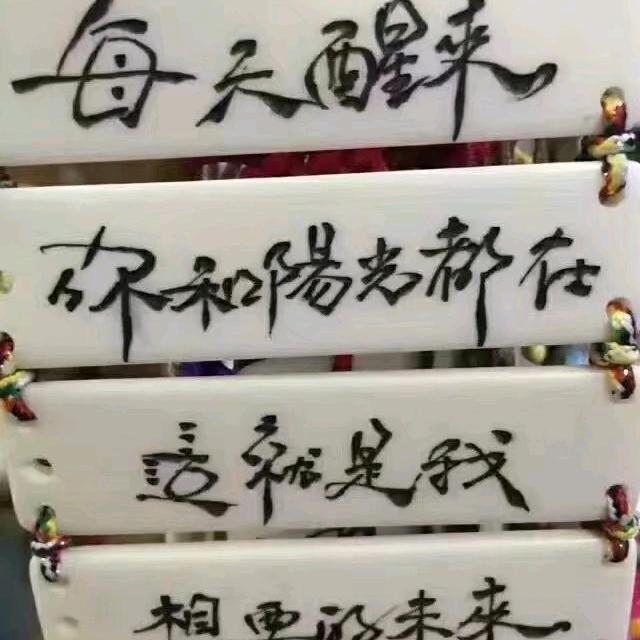 每天醒来
你和陽光都在
這就是我
相要的未来